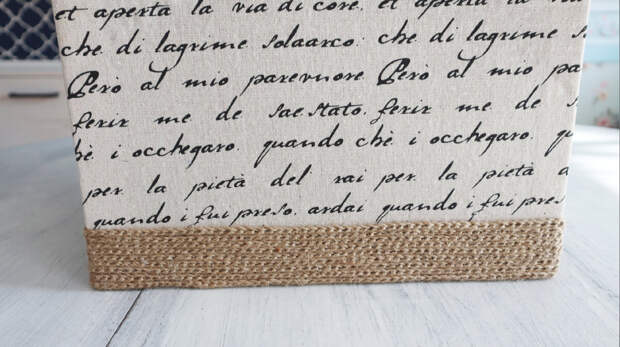 et aperta la via di core. et aperta la via
che di lagrime solaarco. che di lagrime s
Però al mio parevuore Però al mio pa
ferir me de saestato. ferir me de s
hè i occhegaro. quando chè i occhegaro. qu
per la pietà del rai per la pietà a
quando i fui preso. ardai quando i fui pres